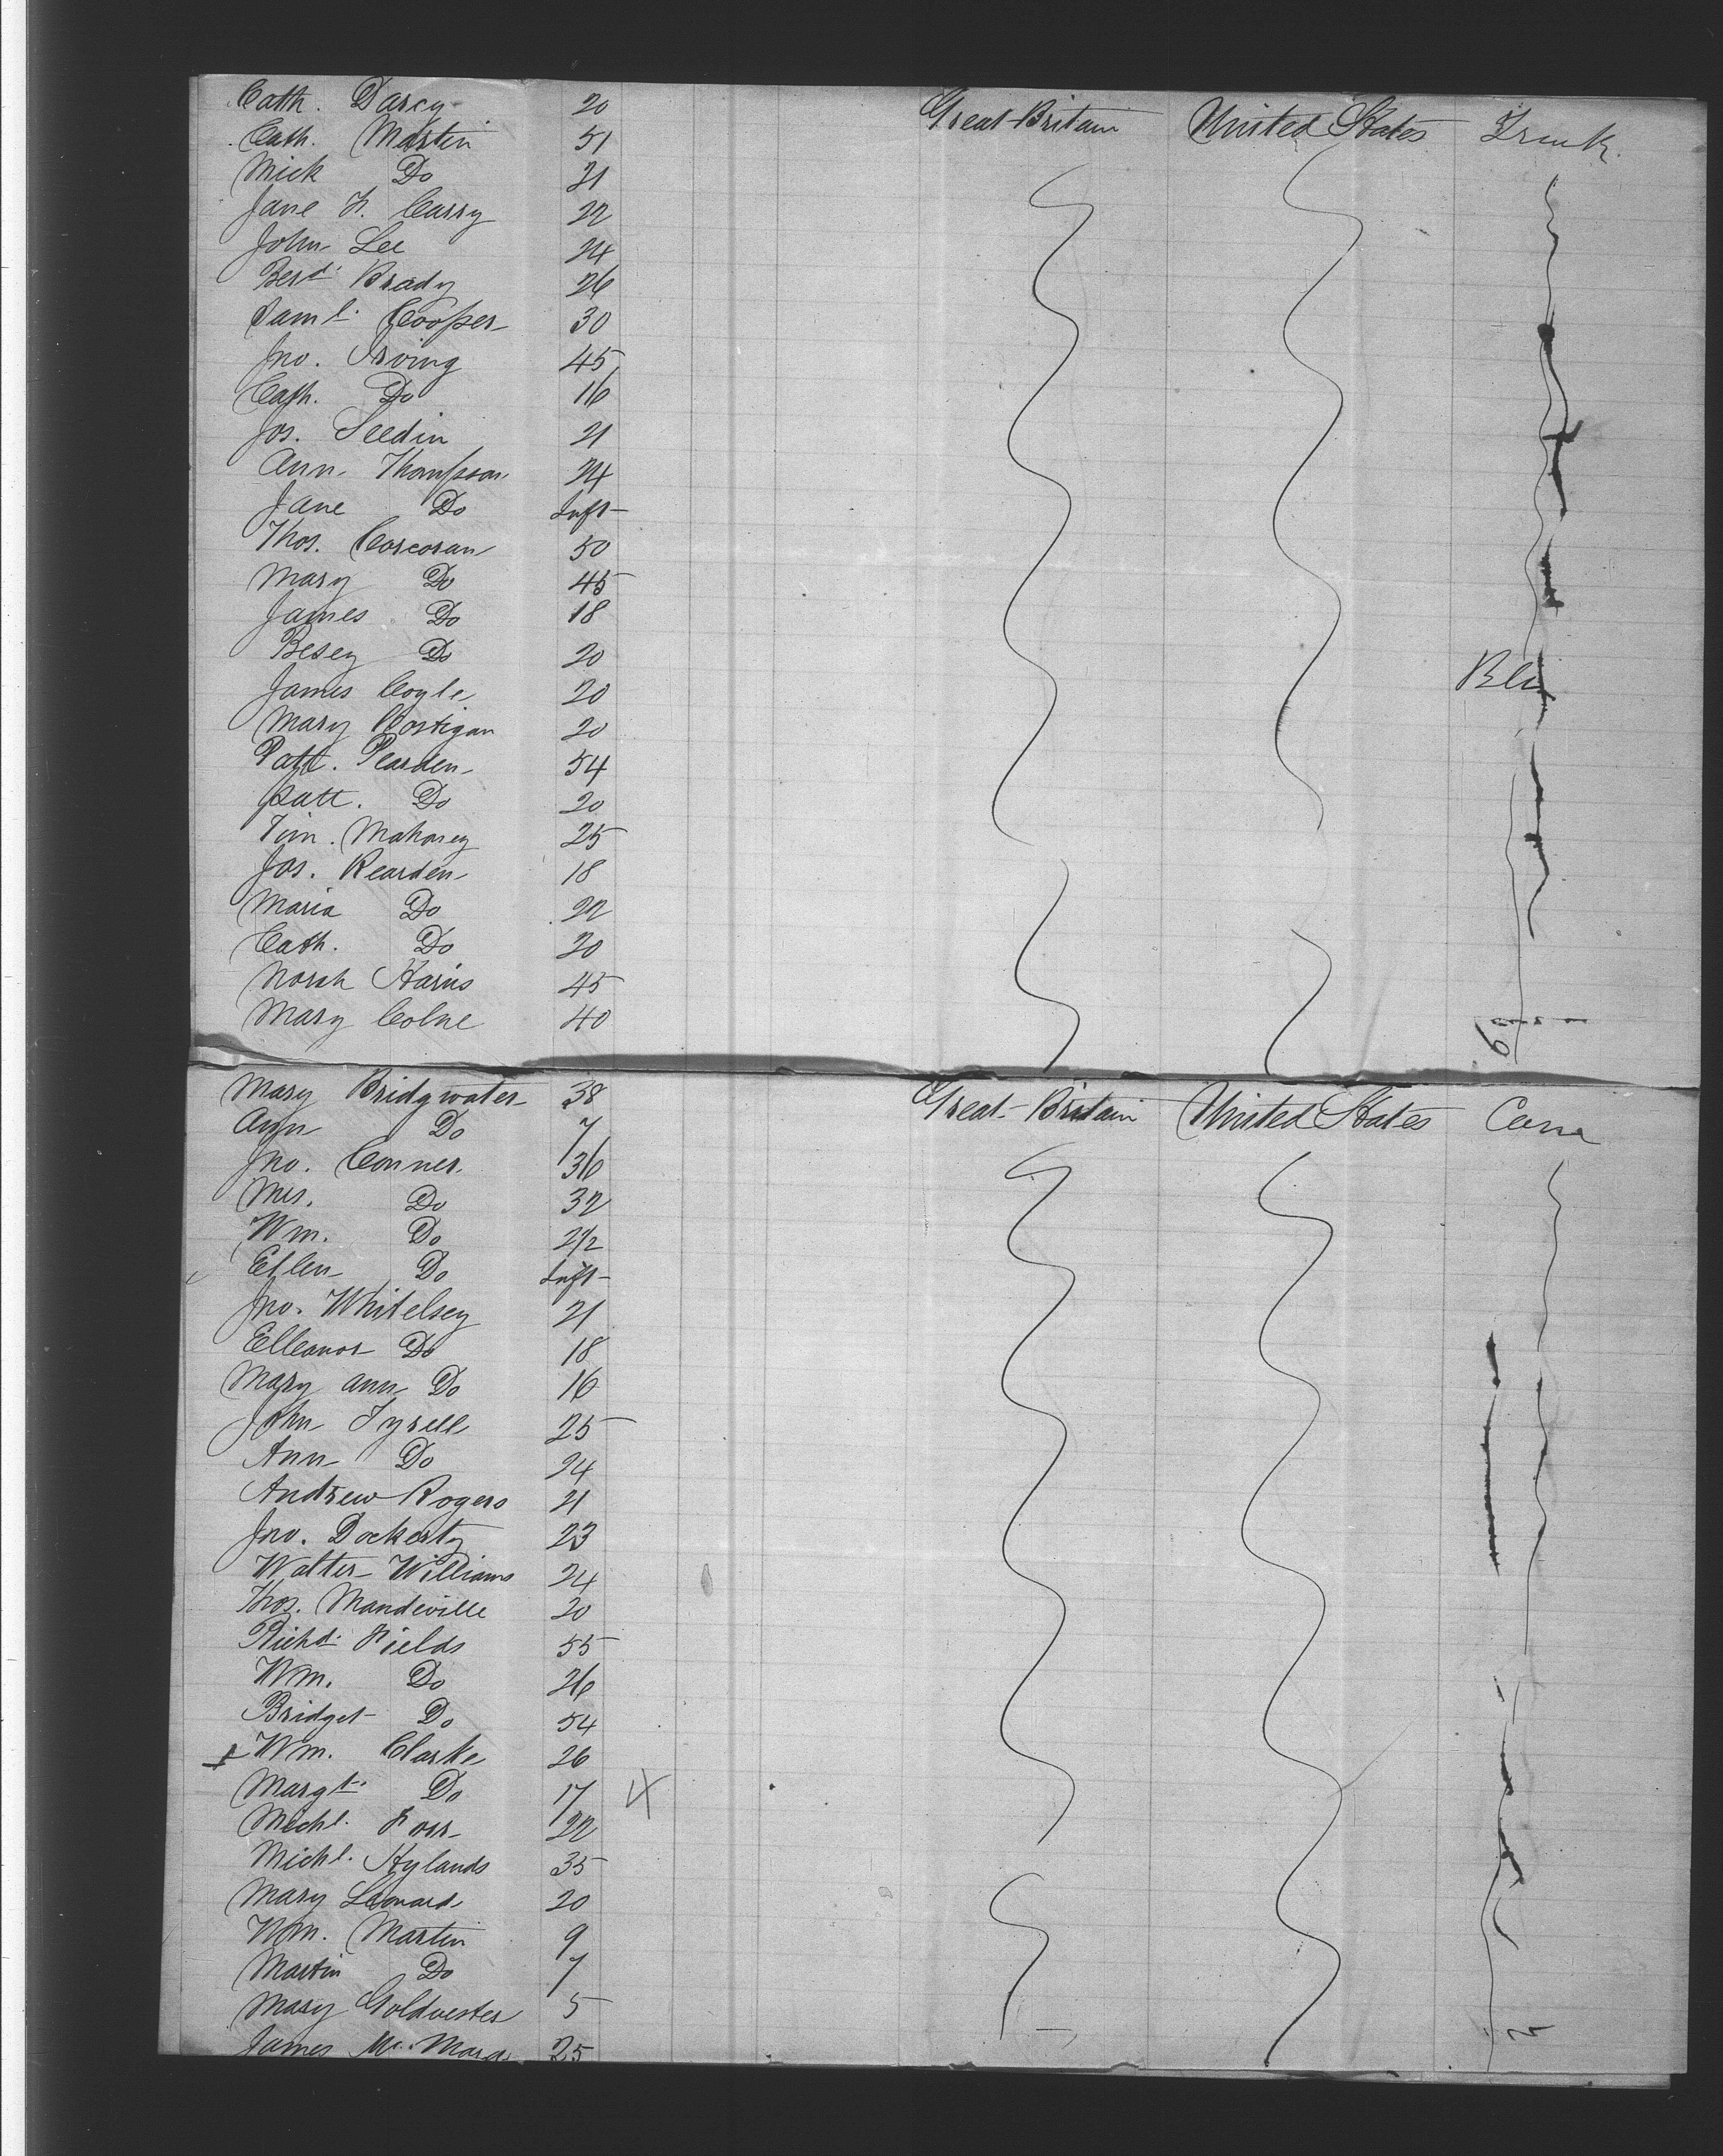 Cath. Darcy 20 Great-Britain United States Trunk.
Cath. Martin 51
Mick Do 21
Jane H. Carry 22
John Lee 24
Berd. Brady 26
Saml. Cooper 30
Jno. Irving 45
Cath. Do 16
Jos. Seedin 21
Ann Thompson 24
Jane Do Inft
Thos. Corcoran 50
Mary Do 45
James Do 18
Besey Do 20
James Coyle 20
Mary Costigan 20
Patt. Pearden 54
Patt. Do 20
Tim. Mahoney 25
Jas. Rearden 18
Maria Do 22
Cath. Do 20
Norah Harris 45
Mary Colne 40
Mary Bridgwater 38 Great-Britain United States
Ann Do 7
Jno. Conner 36
Mrs. Do 32
Wm. Do 2 1/2
Ellen Do Inft
Jno. Whitelsey 21
Elleanor Do 18
Mary Ann Do 16
John Tyrell 25
Ann Do 24
Andrew Rogers 21
Jno. Dockerty 23
Walter Williams 24
Thos. Mandeville 20
Richd. Fields 55
Wm. Do 26
Bridget Do 54
Wm. Clarke 26
Margt. Do 17
Michl. 22
Michl. Hylands 35
Mary Leonard 20
Wm. Martin 9
Martin Do 7
Mary 5
James 25